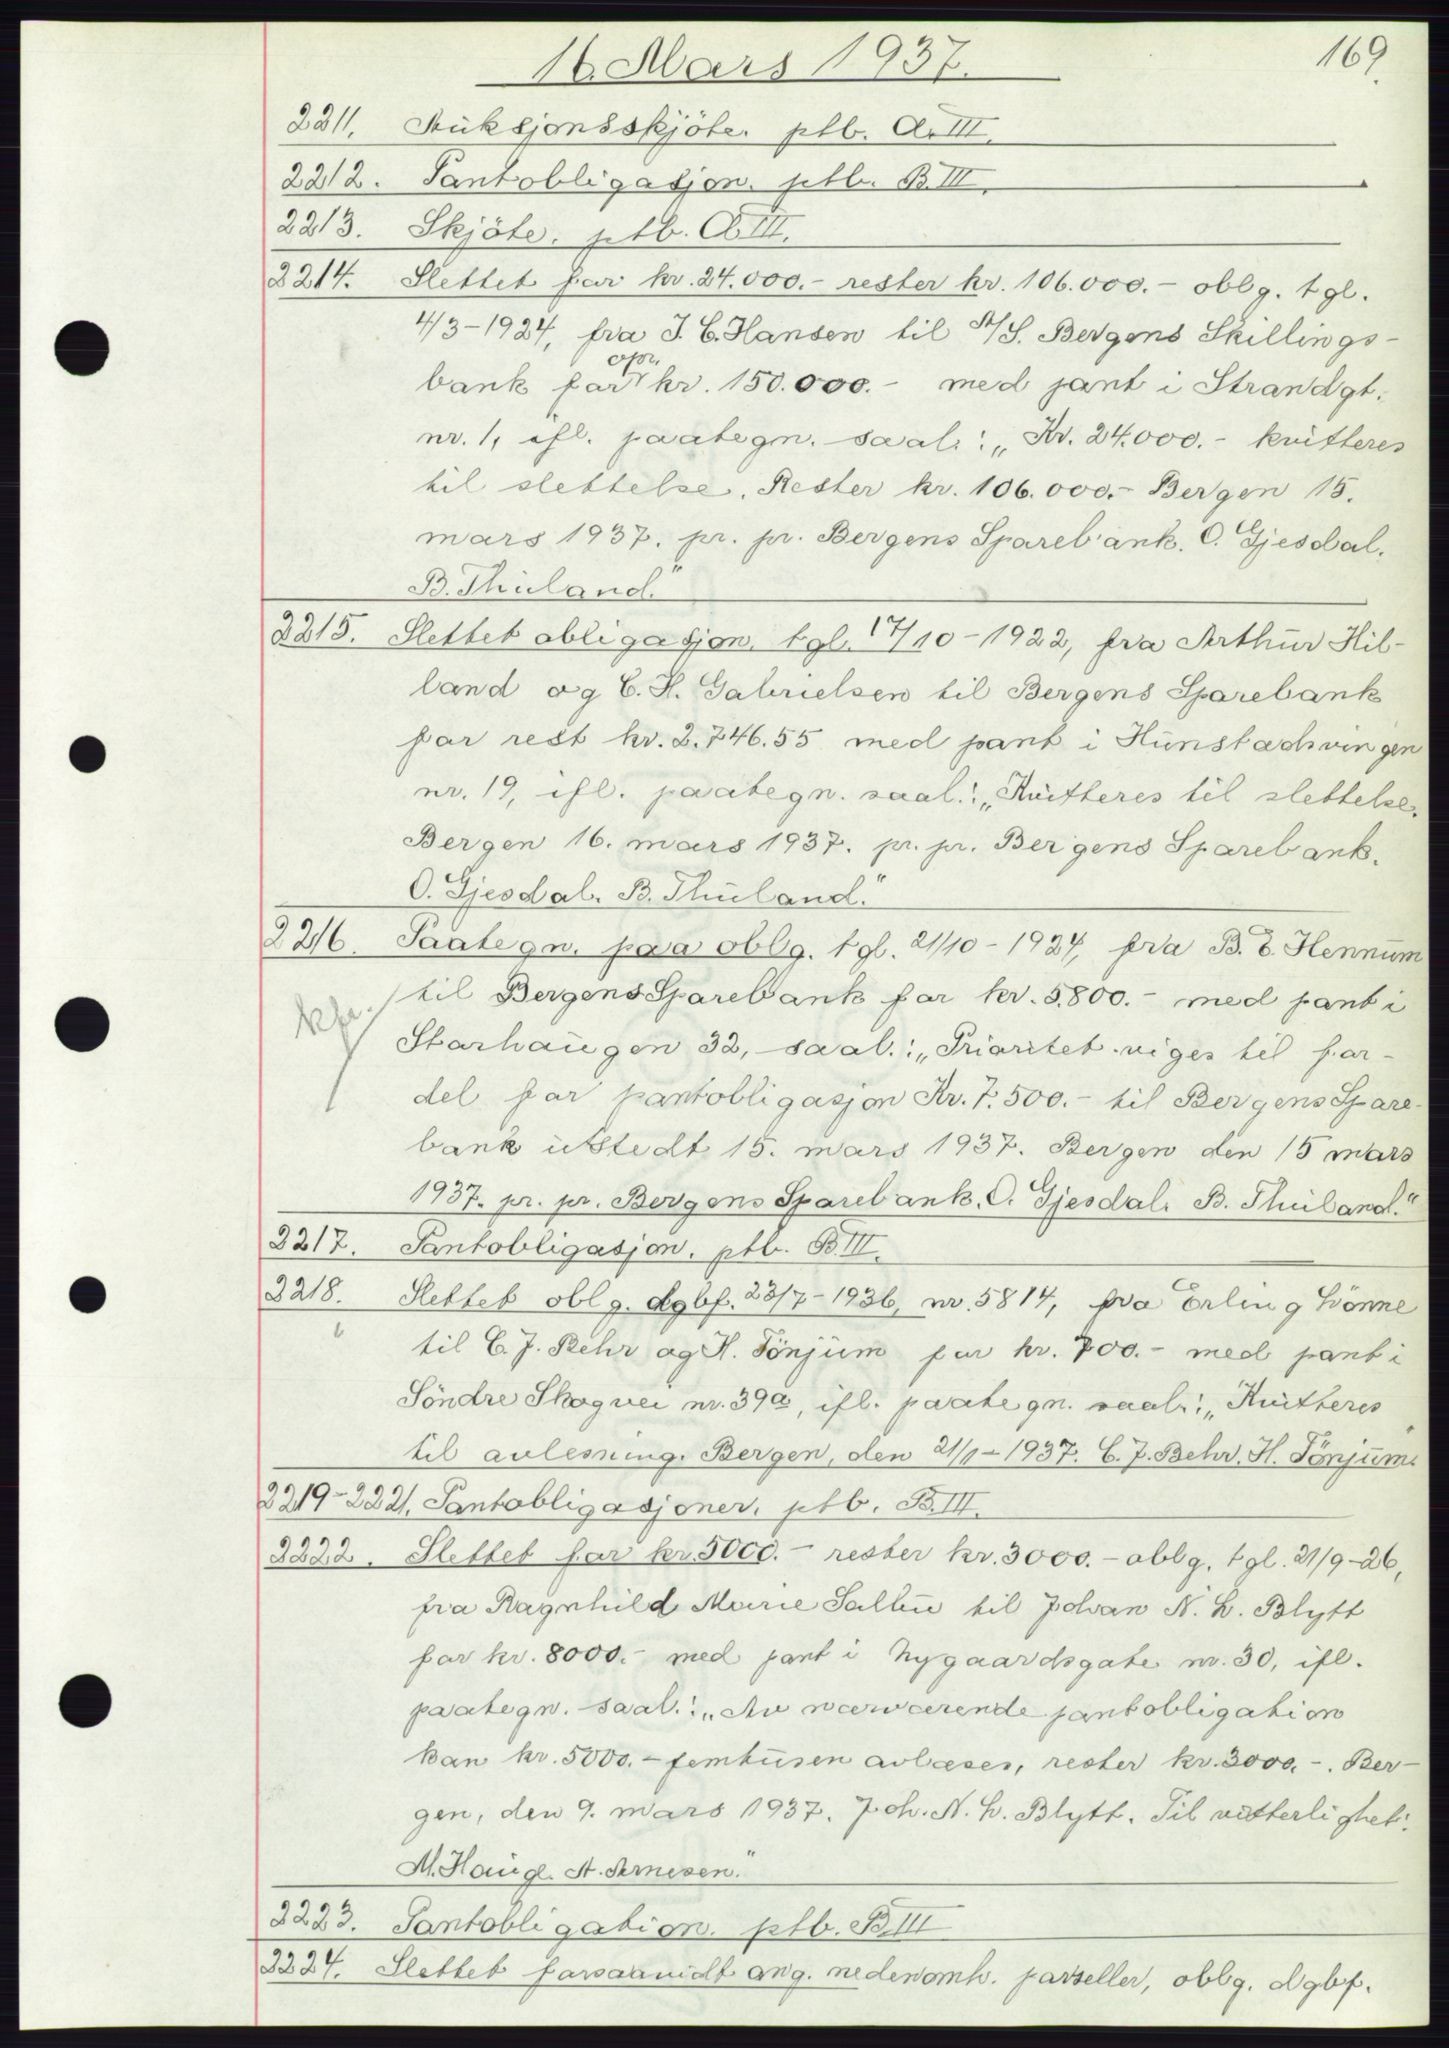 169.
16. Mars 1937.
2211. Auksjonsskjöte. ptb. A.III.
2212. Pantobligasjon. ptb. B.III.
2213. Skjöte. ptb. A.III.
2214. Slettet for kr. 24.000.- rester kr. 106.000.- oblg. tgl.
4/3-1924, fra J. C. Hansen til A/S. Bergens Skillings-
opr.
bank for kr. 150.000.- med pant i Strandgt.
nr. 1, ifl. paategn. saal.: „Kr. 24.000.- kvitteres
til slettelse. Rester kr. 106.000.- Bergen 15.
mars 1937. pr. pr. Bergens Sparebank. O. Gjesdal.
B. Thuland."
2215. Slettet obligasjon. tgl. 17/10-1922, fra Arthur Hil-
land og C. H. Gabrielsen til Bergens Sparebank
for rest kr. 2.746.55 med pant i Hunstadsvingen
nr. 19, ifl. paategn. saal.: „Kvitteres til slettelse.
Bergen 16. mars 1937. pr. pr. Bergens Sparebank.
O. Gjesdal. B. Thuland."
2216. Paategn. paa oblg. tgl. 21/10-1924, fra B. E. Hennum
til Bergens Sparebank for kr. 5.800.- med pant i
Starhaugen 32, saal.: „Prioritet viges til for-
del for pantobligasjon Kr. 7.500.- til Bergens Spare-
bank utstedt 15. mars 1937. Bergen den 15 mars
1937. pr. pr. Bergens Sparebank. O. Gjesdal. B. Thuland."
2217. Pantobligasjon. ptb. B III.
2218. Slettet oblg. dgbf. 23/7-1936, nr. 5814, fra Erling Lönne
til C. J. Behr og H. Tönjum for kr. 700.- med pant i
Söndre Skogvei nr. 39a, ifl. paategn. saal.: „Kvitteres
til avlesning. Bergen, den 21/1-1937. C. J. Behr. H. Tönjum."
2219-2221. Pantobligasjoner. ptb. B.III.
2222. Slettet for kr. 5000.- rester kr. 3000.- oblg. tgl. 21/9-26,
fra Ragnhild Marie Sallie til Johan N. L. Blytt
for kr. 8000.- med pant i Nygaardsgate nr. 30, ifl.
paategn. saal.: „Av nærværende pantobligation
kan kr. 5000.- femtusen avlæses, rester kr. 3000.-. Ber-
gen, den 9. mars 1937. Joh. N. L. Blytt. Til vitterlighet:
M. Haug. A. Arnesen."
2223. Pantobligation. ptb. B.III
2224. Slettet forsaavidt ang. nedenomh. parseller, oblg. dgbf.